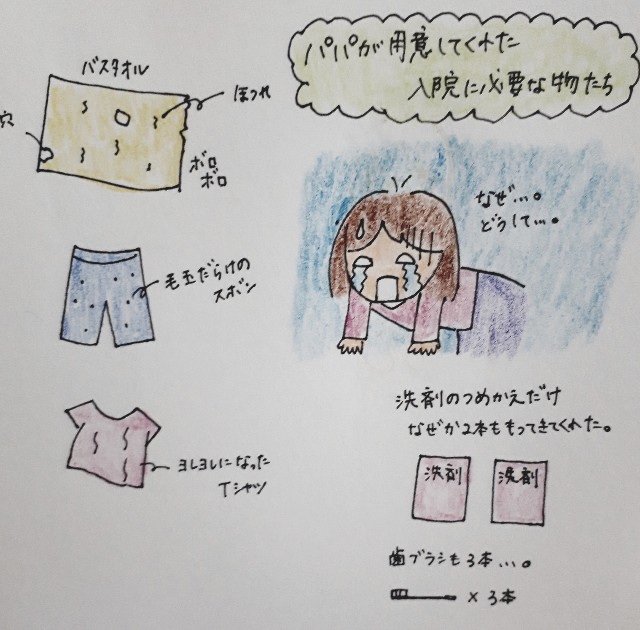 パパが用意してくれた
入院に必要な物たち
バスタオル
ほつれ
穴
ボロ
ボロ
なぜ...。
どうして...。
毛玉だらけの
ズボン
ヨレヨレになった
Tシャツ
洗剤のつめかえだけ
なぜか2本ももってきてくれた。
洗剤
洗剤
歯ブラシも3本...。
× 3本